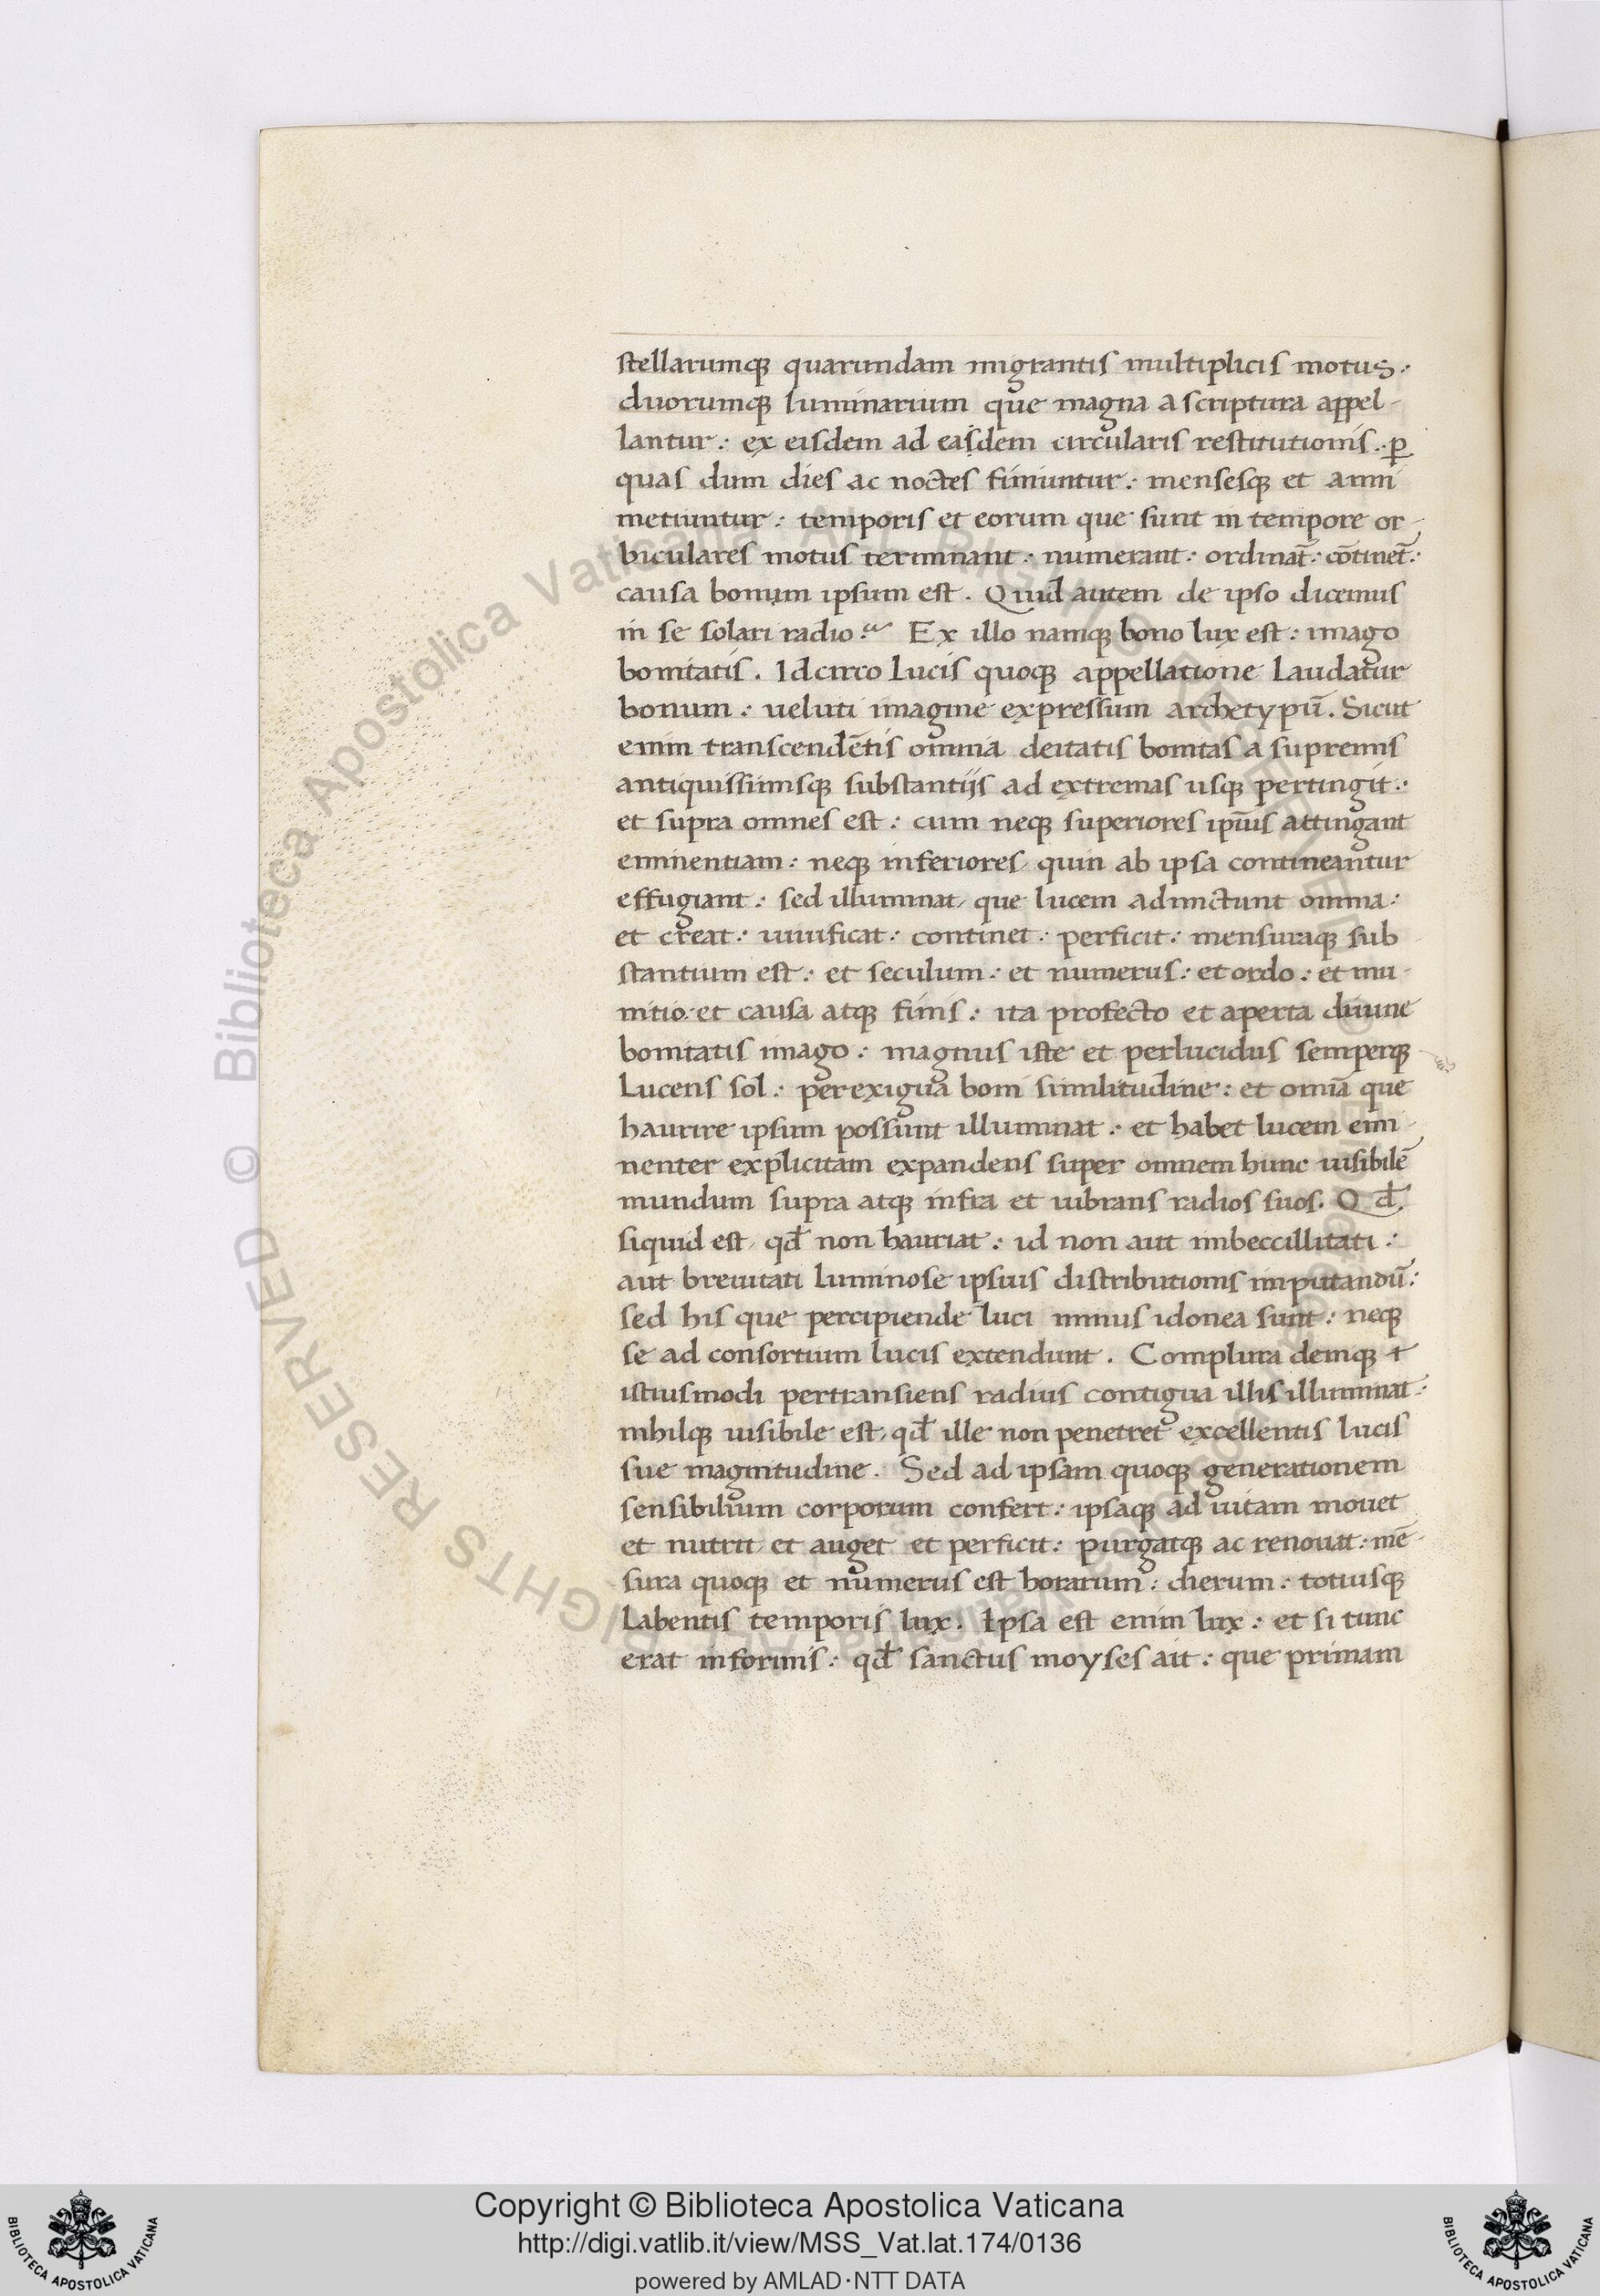 stellarumq̃ quarundam migrantis multiplicis motus:·
duorumq̃ luminarium que magna a scriptura appel-
lantur:· ex eisdem ad easdem circularis restitutionis:· ꝑ
quas dum dies ac noctes finiuntur:· mensesq̃ et anni
metiuntur:· temporis et eorum que sunt in tempore or-
biculares motus terminant:· numerant:· ordinat̄:· cōtinet̄:·
causa bonum ipsum est. Quid autem de ipso dicemus
in se solari radio? Ex illo namq̃ bono lux est:· imago
bonitatis. Idcirco lucis quoq̃ appellatione laudatur
bonum:· ueluti imagine expressum archetypū. Sicut
enim transcendētis omnia deitatis bonitas a supremis
antiquissimisq̃ substantijs ad extremas usq̃ pertingit:·
et supra omnes est:· cum neq̃ superiores ip̄ius attingant
eminentiam:· neq̃ inferiores, quin ab ipsa contineantur
effugiant:· sed illuminat, que lucem admictunt omnia:·
et creat:· uiuificat:· continet:· perficit:· mensuraq̃ sub
stantium est:· et seculum:· et numerus:· et ordo:· et mu-
nitio:· et causa atq̃ finis:· ita profecto et aperta diuine
bonitatis imago:· magnus iste et perlucidus semperq̃
lucens sol:· perexigua boni similitudine:· et omīa que
haurire ipsum possunt illuminat:· et habet lucem emi-
nenter explicitam expandens super omnem hunc uisibilē
mundum supra atq̃ infra et uibrans radios suos. Qd̄
siquid est, qd̄ non hauriat:· id non aut imbeccillitati:·
aut breuitati luminose ipsius distributionis imputandū:·
sed his que percipiende luci minus idonea sunt:· neq̃
se ad consortium lucis extendunt. Complura deniq̃ et
istiusmodi pertransiens radius contigua illis illuminat:·
nihilq̃ uisibile est, qd̄ ille non penetret excellentis lucis
sue magnitudine. Sed ad ipsam quoq̃ generationem
sensibilium corporum confert:· ipsaq̃ ad uitam mouet
et nutrit, et auget et perficit:· purgatq̃ ac renouat:· mē-
sura quoq̃ et numerus est horarum:· dierum:· totiusq̃
labentis temporis lux. Ipsa est enim lux:· et si tunc
erat informis:· qd̄ sanctus moyses ait:· que primam
© Biblioteca Apostolica Vaticana
RIGHTS RESERVED
Copyright © Biblioteca Apostolica Vaticana
http://digi.vatlib.it/view/MSS_Vat.lat.174/0136
powered by AMLAD·NTT DATA
BIBLIOTECA APOSTOLICA VATICANA
BIBLIOTECA APOSTOLICA VATICANA